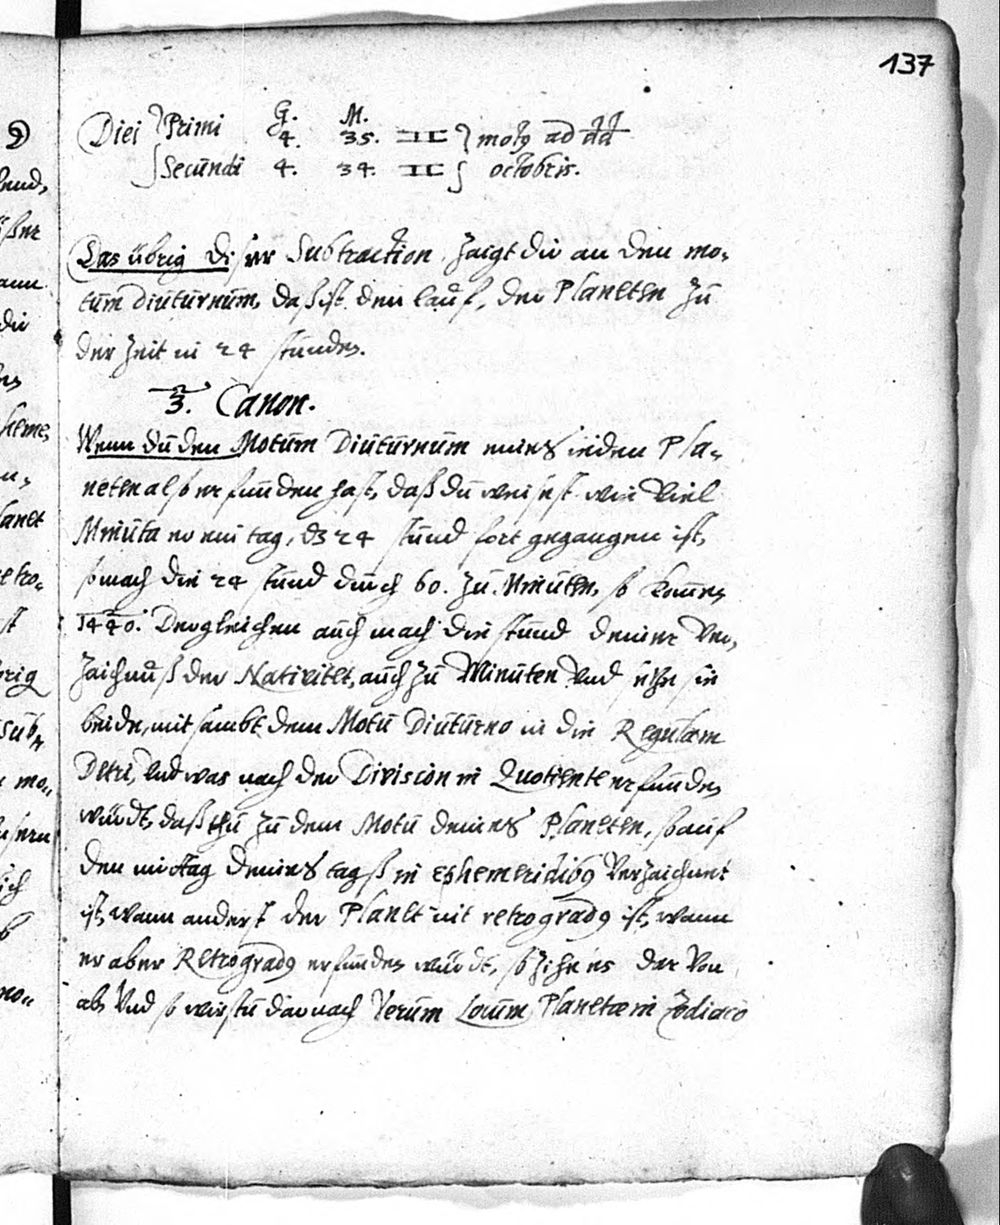 137
G. M.
Diei Primi 4. 35. II motq ad dd
Secundi 4. 34. II octobris.
Das übrig diser Subtraction, zaigt dir an den mo-
tum Diuturnum, daß ist den lauf, der Planeten zu
der zeit in 24 stunden.
3. Canon.
Wenn du den Motum Diuturnum eines ieden Pla-
neten also erfunden hast, daß du weisest wie Viel
Minuta er ein tag, dz 24 stund fort gegangen ist,
so mach die 24 stund durch 60. zu Minuten, so komen
1440. Dergleichen auch mach die stund deiner Ver-
zaichnuß der Nativitet, auch zu Minuten Vnd setze sie
beide, mit sambt dem Motu Diuturno in die Regulam
Detri, Vnd was nach der Division in Quotiente erfunden
würdt, daß thu zu dem Motu deines Planeten, so auf
den mittag deines tagß in ephemeridibq Verzaichnet
ist, wann anderst der Planet nit retrogradq ist, wann
er aber Retrogradq erfunden würdt, so zihe es dar Von
ab, Vnd so wirstu darnach Verum Locum Planetæ in Zodiaco